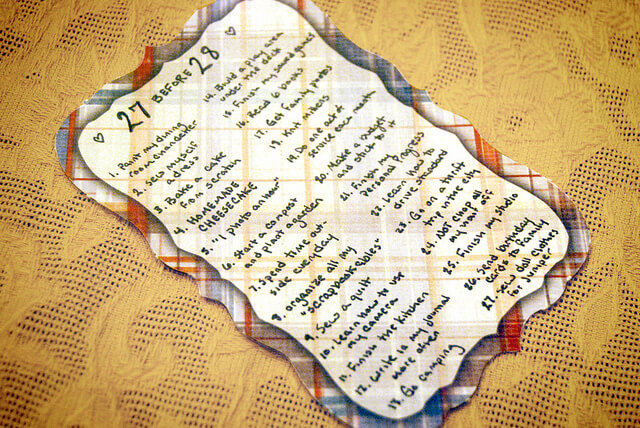 27 BEFORE 28
1. Paint my dining
room
2. Sew myself
a dress
3. Bake a cake
from scratch
4. HOMEMADE
CHEESECAKE
5. "1 photo an hour"
6. Start a compost
and plant a garden
7. Spend time out-
side everyday
8. organize all my
9. Sew a quilt
10. Learn how to use
my camera
11. Finish the kitchen
12. write in my journal
more often
13. Go camping
14. Build a play area
15. Finish my
16. Read
17. Get family photos
19. Do one act of
service each month
20. Make a budget
and stick to it
21. Finish my
Personal Progress
22. Learn how to
drive
23. Go on a
in
24. Not chop all
my hair off
25. Finish my studio
26. Send birthday
cards to family
27. Sew doll clothes